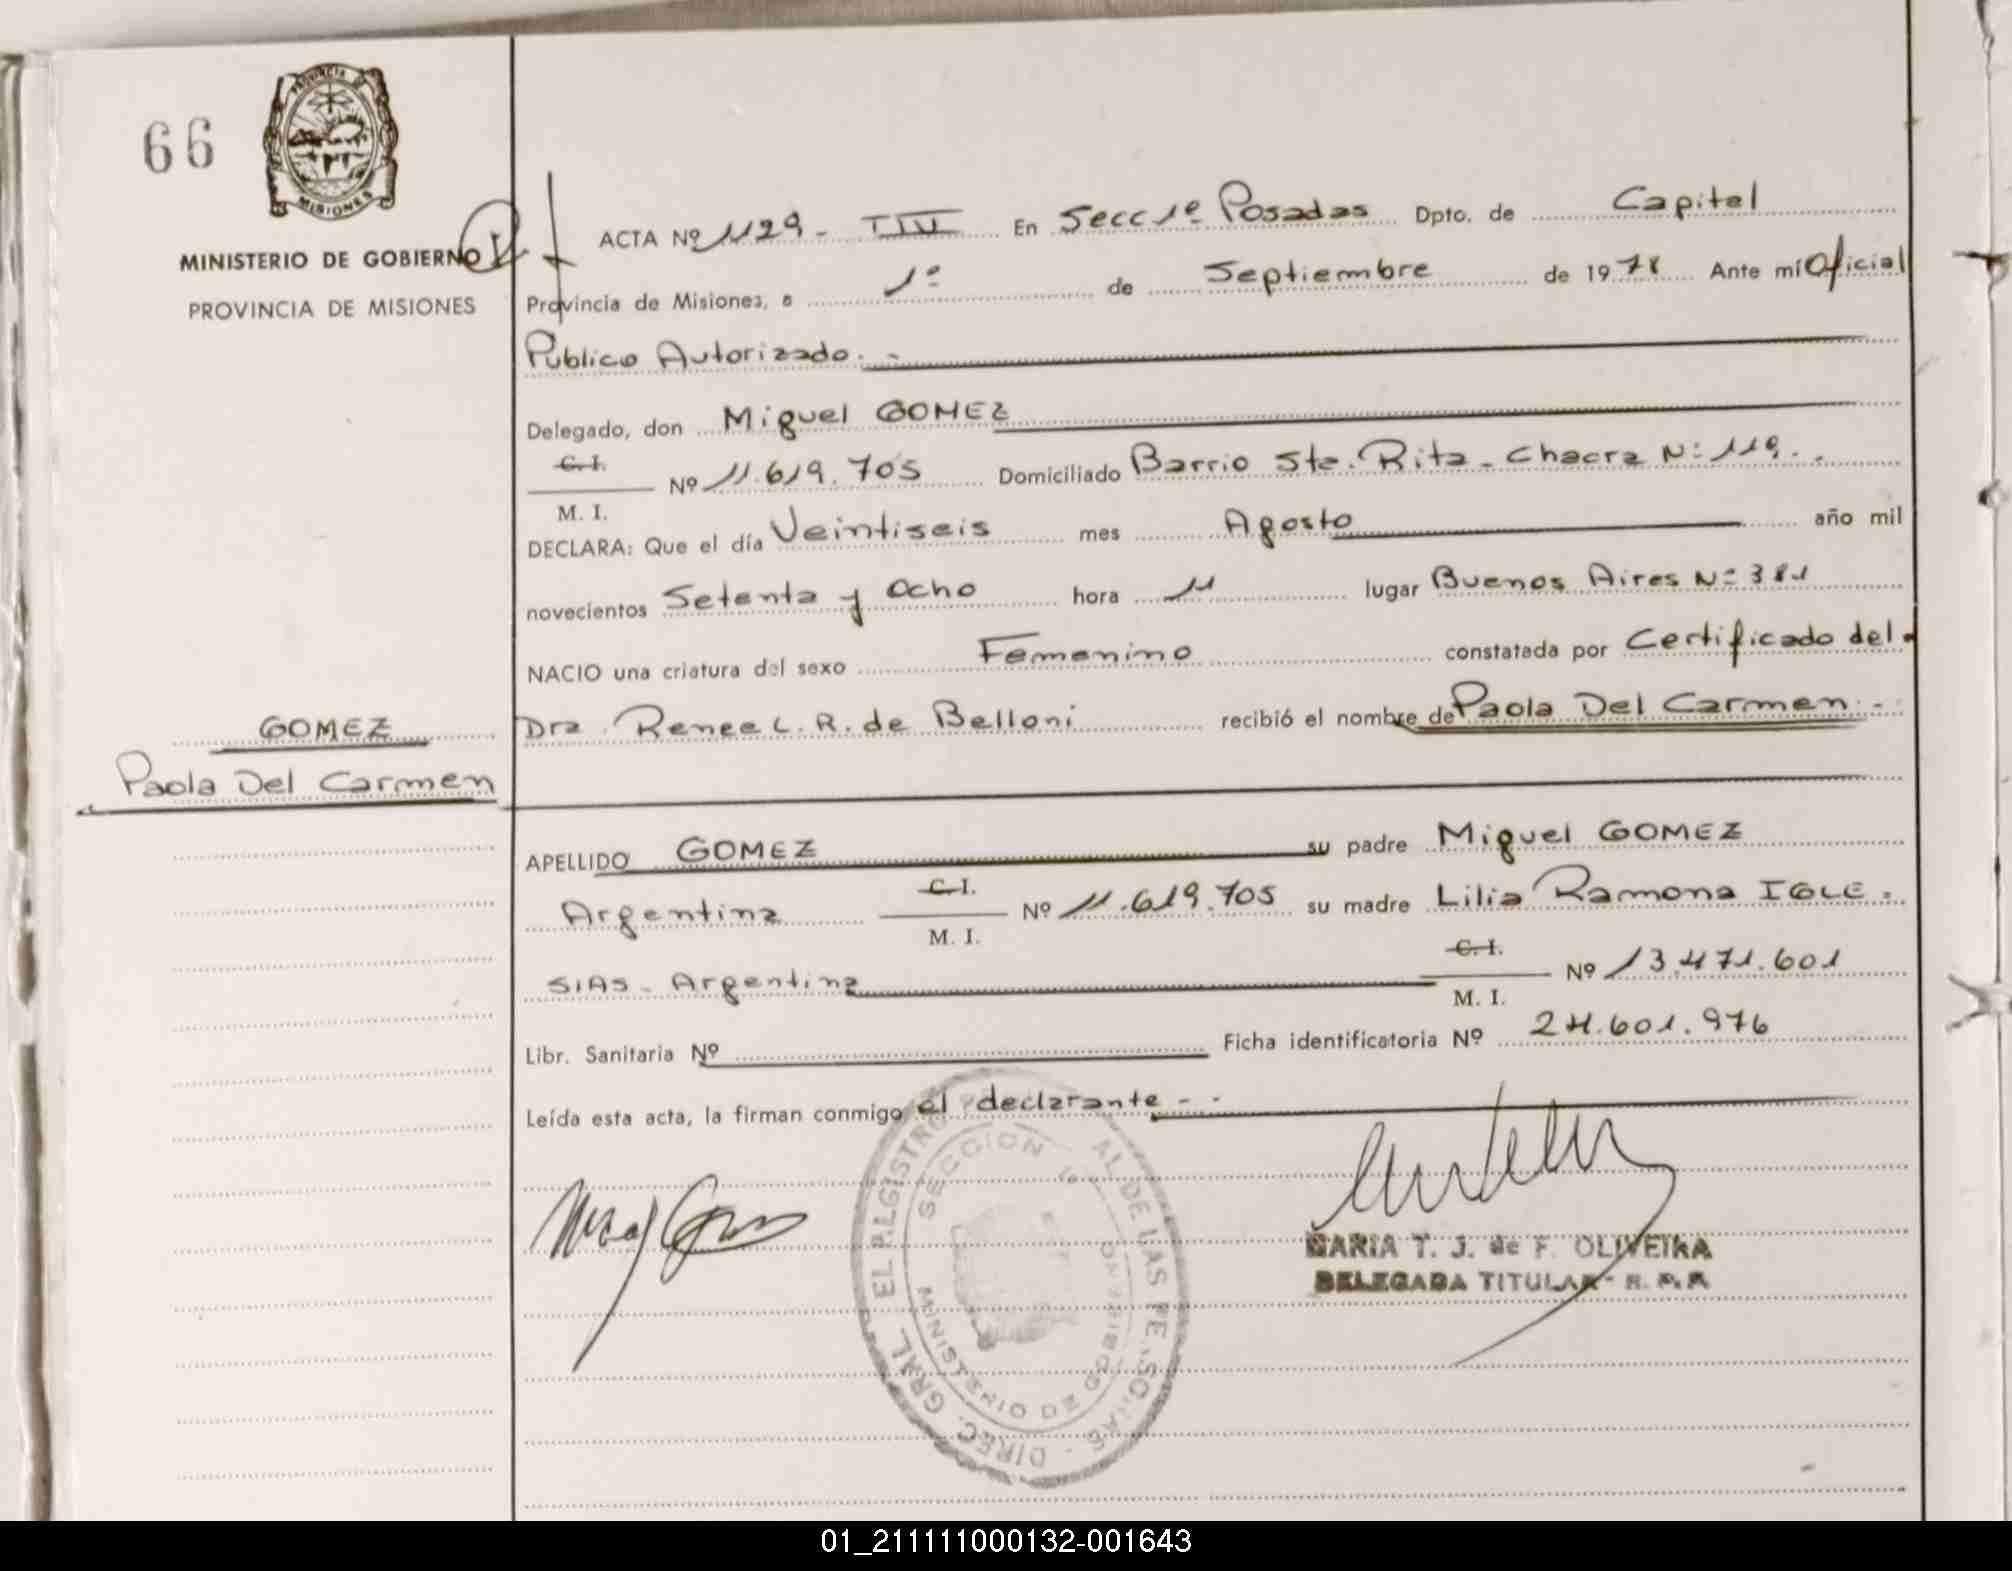 66
PROVINCIA DE
MISIONES
MINISTERIO DE GOBIERNO
PROVINCIA DE MISIONES
ACTA Nº 1129 - TIV En Secc 1º Posadas Dpto. de Capital
Provincia de Misiones, a 1º de Septiembre de 1978 Ante mí Oficial
Publico Autorizado. -
Delegado, don Miguel GOMEZ
C. I.
M. I.
Nº 11.619.705 Domiciliado Barrio Sta. Rita - Chacra Nº 119. -
DECLARA: Que el día Veintiseis mes Agosto año mil
novecientos Setenta y Ocho hora 11 lugar Buenos Aires Nº 381
NACIO una criatura del sexo Femenino constatada por Certificado del
Dra. Renee L. R. de Belloni recibió el nombre de Paola Del Carmen. -
GOMEZ
Paola Del Carmen
APELLIDO GOMEZ su padre Miguel GOMEZ
Argentina C. I. M. I. Nº 11.619.705 su madre Lilia Ramona IGLE-
SIAS - Argentina C. I. M. I. Nº 13.471.601
Libr. Sanitaria Nº Ficha identificatoria Nº 24.601.976
Leída esta acta, la firman conmigo el declarante - .
DIREC. GRAL. DE LAS
SECCION 1ª
MINISTERIO DE GOBIERNO
MARIA T. J. de F. OLIVEIRA
DELEGADA TITULAR - R. P. P.
01_211111000132-001643